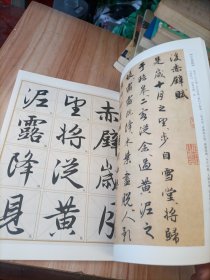 後赤壁賦
是歲十月之望步自雪堂將歸
于臨皋二客從余過黃泥之
坂霜露既降木葉盡脫人影
赤壁歲
望將從黃
泥露降見